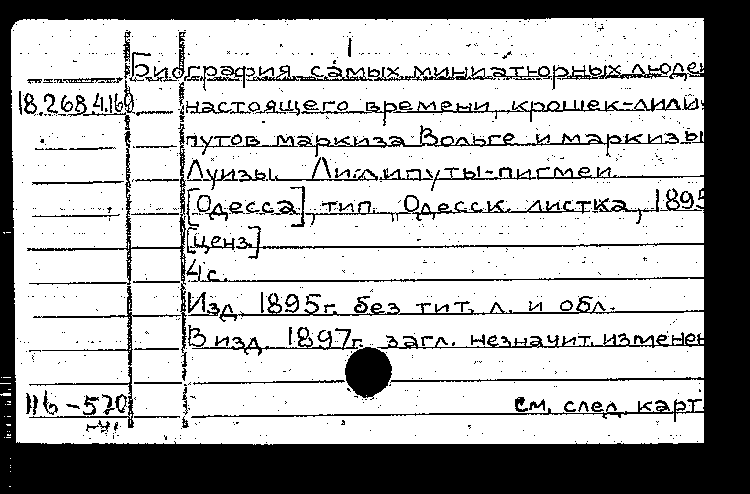 1
Биография самых миниатюрных люде
18.268.4.160 настоящего времени, крошек-лили-
путов маркиза Вольге и маркизы
Луизы. Лиллипуты-пигмеи.
[Одесса], тип. „Одесск. листка, 1895
[ценз.]
4 с.
Изд. 1895г. без тит. л. и обл.
В изд. 1897г. загл. незначит. изменен
116-570 см. след. карт.